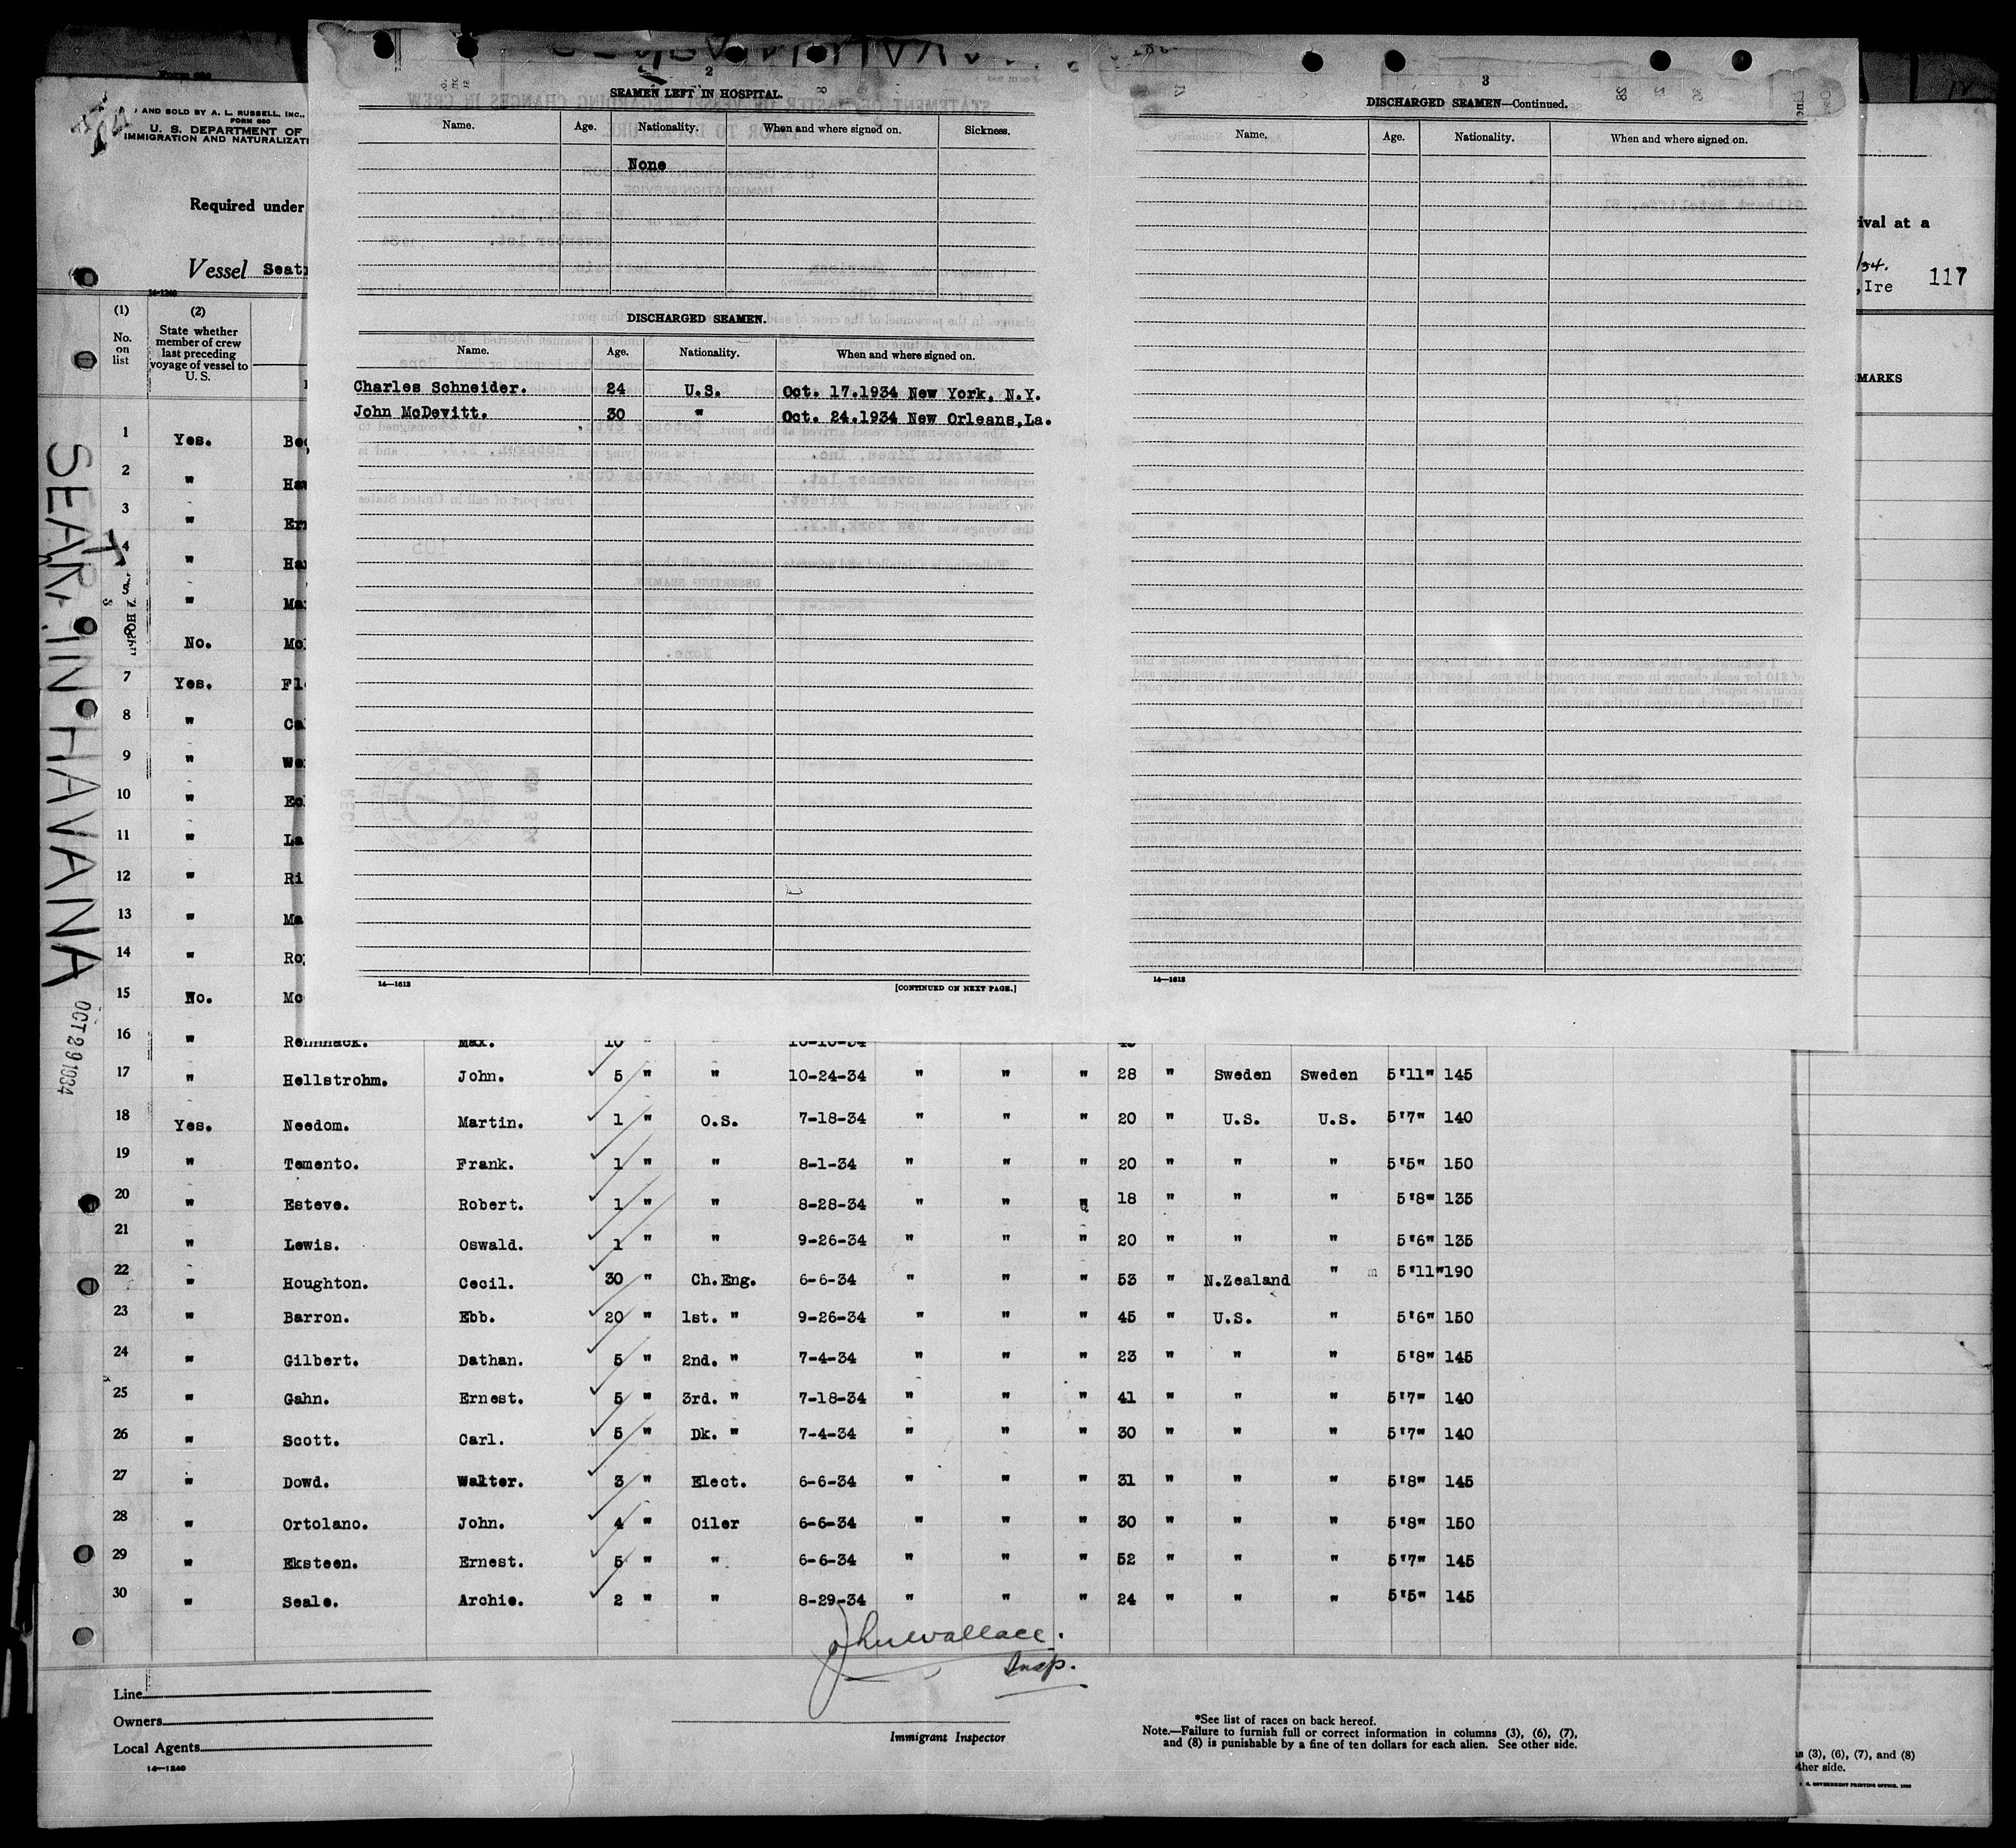 AND SOLD BY A. L. RUSSELL, INC.,
FORM 680
U. S. DEPARTMENT OF
IMMIGRATION AND NATURALIZATI
Required under
Vessel Seat
14-1240
(1) (2)
No. on list
State whether member of crew last preceding voyage of vessel to U. S.
SEATRAIN HAVANA
OCT 29 1934
2
SEAMEN LEFT IN HOSPITAL.
Name. Age. Nationality. When and where signed on. Sickness.
None
DISCHARGED SEAMEN.
Name. Age. Nationality. When and where signed on.
Charles Schneider. 24 U.S. Oct. 17.1934 New York, N.Y.
John McDevitt. 30 " Oct. 24.1934 New Orleans,La.
14—1613
[CONTINUED ON NEXT PAGE.]
3
DISCHARGED SEAMEN—Continued.
Name. Age. Nationality. When and where signed on.
14—1613
ival at a
/34.
,Ire 117
MARKS
1 Yes.
2 " Ha
3 " Er
4 " Ha
5 " Ma
No. Mc
7 Yes. Fl
8 " Ca
9 " We
10 " Ec
11 " La
12 " Ri
13 " Ma
14 " Ro
15 No. Mc
16 " Max. 10 " " 10-10-34
17 " Hellstrohm. John. 5 " " 10-24-34 " " " 28 " Sweden Sweden 5'11" 145
18 Yes. Needom. Martin. 1 " O.S. 7-18-34 " " " 20 " U.S. U.S. 5'7" 140
19 " Temento. Frank. 1 " " 8-1-34 " " " 20 " " " 5'5" 150
20 " Esteve. Robert. 1 " " 8-28-34 " " " 18 " " " 5'8" 135
21 " Lewis. Oswald. 1 " " 9-26-34 " " " 20 " " " 5'6" 135
22 " Houghton. Cecil. 30 " Ch.Eng. 6-6-34 " " " 53 " N.Zealand " m 5'11" 190
23 " Barron. Ebb. 20 " 1st. " 9-26-34 " " " 45 " U.S. " 5'6" 150
24 " Gilbert. Dathan. 5 " 2nd. " 7-4-34 " " " 23 " " " 5'8" 145
25 " Gahn. Ernest. 5 " 3rd. " 7-18-34 " " " 41 " " " 5'7" 140
26 " Scott. Carl. 5 " Dk. " 7-4-34 " " " 30 " " " 5'7" 140
27 " Dowd. Walter. 3 " Elect. 6-6-34 " " " 31 " " " 5'8" 145
28 " Ortolano. John. 4 " Oiler 6-6-34 " " " 30 " " " 5'8" 150
29 " Eksteen. Ernest. 5 " " 6-6-34 " " " 52 " " " 5'7" 145
30 " Seale. Archie. 2 " " 8-29-34 " " " 24 " " " 5'5" 145
John Wallace.
Insp.
Line
Owners
Local Agents
14—1240
Immigrant Inspector
*See list of races on back hereof.
Note.—Failure to furnish full or correct information in columns (3), (6), (7),
and (8) is punishable by a fine of ten dollars for each alien. See other side.
s (3), (6), (7), and (8)
ther side.
GOVERNMENT PRINTING OFFICE